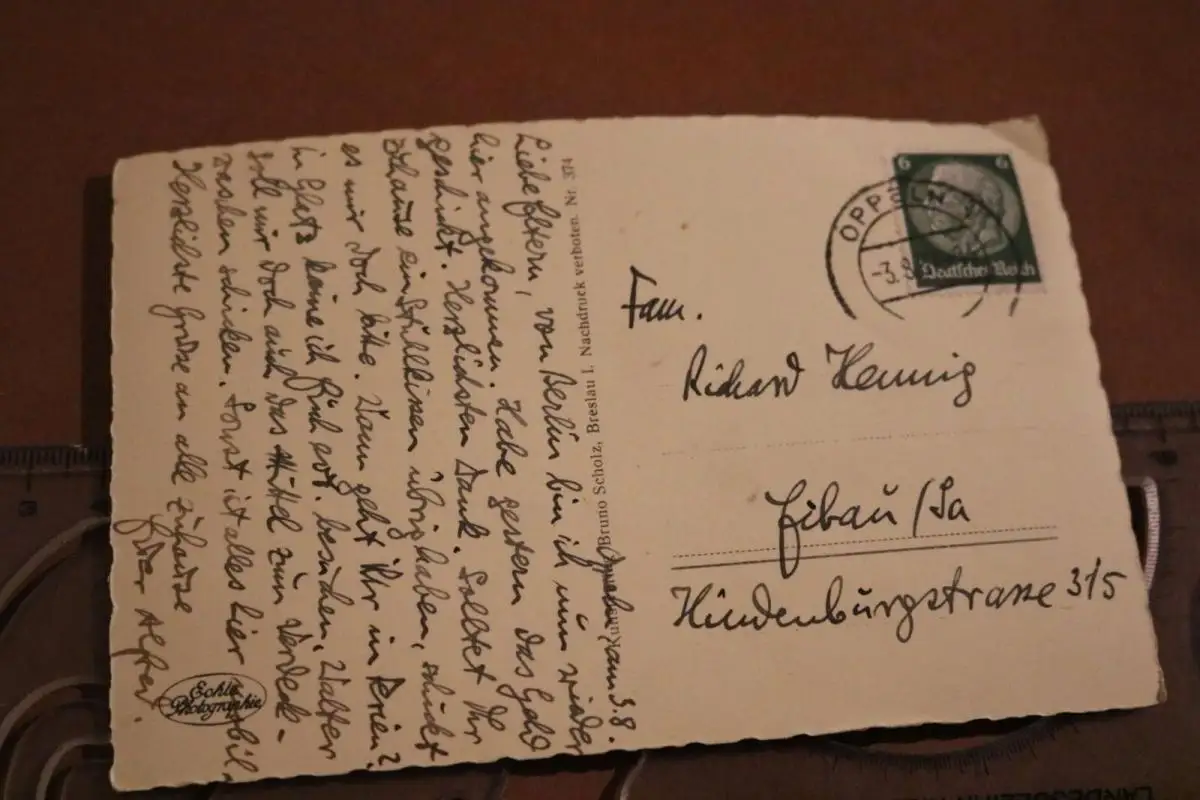 Oppeln, am 3.8.
Liebe Eltern, von Berlin bin ich nun wieder
hier angekommen. Habe gestern das Geld
geschickt. Herzlichsten Dank. Solltet Ihr
zuhause ein übrig haben, schickt
es mir doch bitte. Wann geht Ihr in Ferien?
In Glatz ich Euch evt. besuchen. Walter
soll mir doch auch das Mittel zum Verdeck-
waschen schicken. Sonst ist alles hier mobil.
Herzlichste Grüsse an alle zuhause
Euer Alfred.
Echte
Photographie
Bruno Scholz, Breslau I. Nachdruck verboten. Nr. 374
6 6
Deutsches Reich
OPPELN
-3.8
Fam.
Richard Hennig
Eibau/Sa
Hindenburgstrasse 315